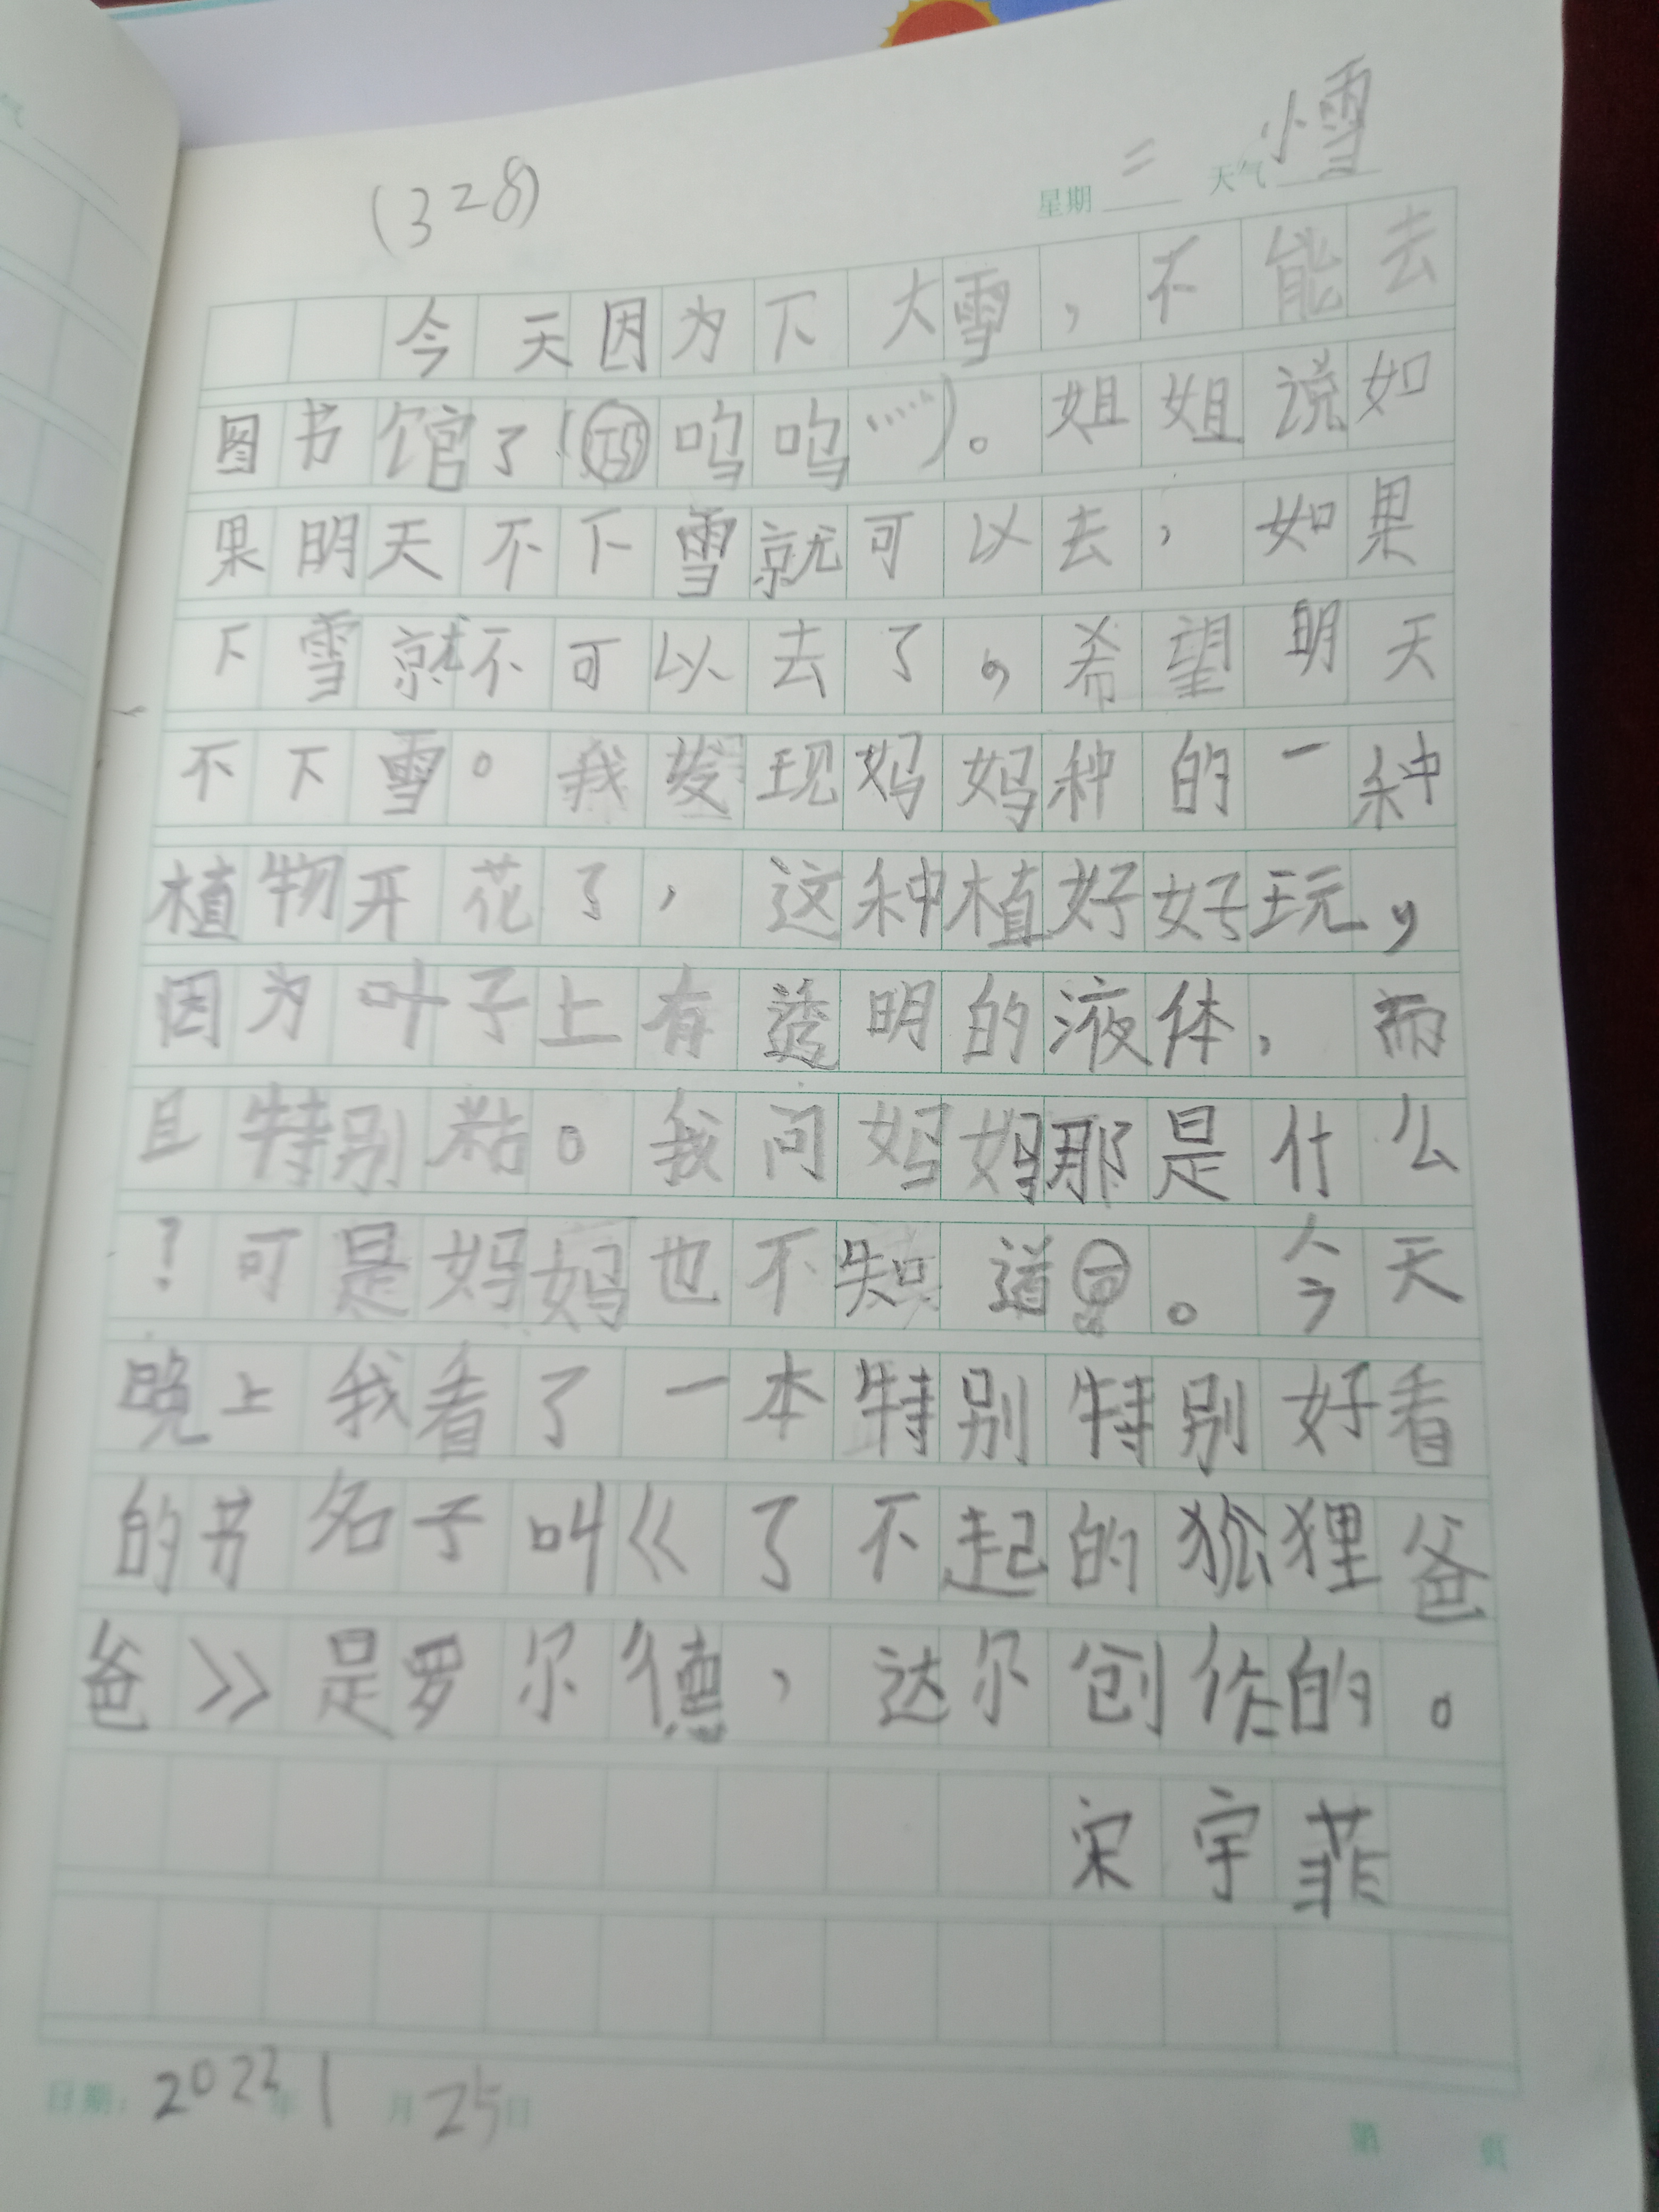 (328)
星期 二 天气 小雪
今天因为下大雪，不能去
图书馆了(呜呜……)。姐姐说如
果明天不下雪就可以去，如果
下雪就不可以去了，希望明天
不下雪。我发现妈妈种的一种
植物开花了，这种植好好玩，
因为叶子上有透明的液体，而
且特别粘。我问妈妈那是什么
？可是妈妈也不知道。今天
晚上我看了一本特别特别好看
的书名子叫《了不起的狐狸爸
爸》是罗尔德，达尔创作的。
宋宇菲
日期：2022年1月25日
第 页